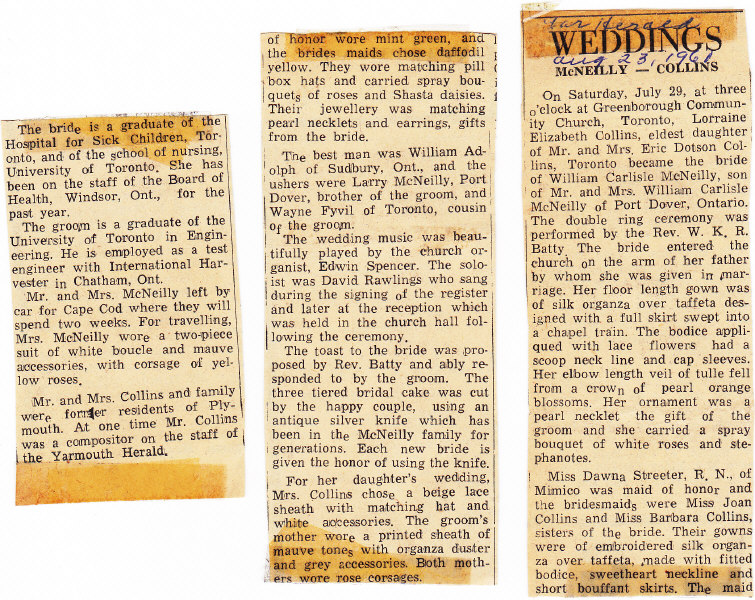 Star Herald
WEDDINGS
Aug 23, 1961
McNEILLY — COLLINS
On Saturday, July 29, at three
o'clock at Greenborough Commun-
ity Church, Toronto, Lorraine
Elizabeth Collins, eldest daughter
of Mr. and Mrs. Eric Dotson Col-
lins, Toronto became the bride
of William Carlisle McNeilly, son
of Mr. and Mrs. William Carlisle
McNeilly of Port Dover, Ontario.
The double ring ceremony was
performed by the Rev. W. K. R.
Batty The bride entered the
church on the arm of her father
by whom she was given in mar-
riage. Her floor length gown was
of silk organza over taffeta de-
signed with a full skirt swept into
a chapel train. The bodice appli-
qued with lace flowers had a
scoop neck line and cap sleeves.
Her elbow length veil of tulle fell
from a crown of pearl orange
blossoms. Her ornament was a
pearl necklet the gift of the
groom and she carried a spray
bouquet of white roses and ste-
phanotes.
Miss Dawna Streeter, R. N., of
Mimico was maid of honor and
the bridesmaids were Miss Joan
Collins and Miss Barbara Collins,
sisters of the bride. Their gowns
were of embroidered silk organ-
za over taffeta, made with fitted
bodice, sweetheart neckline and
short bouffant skirts. The maid
of honor wore mint green, and
the brides maids chose daffodil
yellow. They wore matching pill
box hats and carried spray bou-
quets of roses and Shasta daisies.
Their jewellery was matching
pearl necklets and earrings, gifts
from the bride.
The best man was William Ad-
olph of Sudbury, Ont., and the
ushers were Larry McNeilly, Port
Dover, brother of the groom, and
Wayne Fyvil of Toronto, cousin
of the groom.
The wedding music was beau-
tifully played by the church or-
ganist, Edwin Spencer. The solo-
ist was David Rawlings who sang
during the signing of the register
and later at the reception which
was held in the church hall fol-
lowing the ceremony.
The toast to the bride was pro-
posed by Rev. Batty and ably re-
sponded to by the groom. The
three tiered bridal cake was cut
by the happy couple, using an
antique silver knife which has
been in the McNeilly family for
generations. Each new bride is
given the honor of using the knife.
For her daughter's wedding,
Mrs. Collins chose a beige lace
sheath with matching hat and
white accessories. The groom's
mother wore a printed sheath of
mauve tones with organza duster
and grey accessories. Both moth-
ers wore rose corsages.
The bride is a graduate of the
Hospital for Sick Children, Tor-
onto, and of the school of nursing,
University of Toronto. She has
been on the staff of the Board of
Health, Windsor, Ont., for the
past year.
The groom is a graduate of the
University of Toronto in Engin-
eering. He is employed as a test
engineer with International Har-
vester in Chatham, Ont.
Mr. and Mrs. McNeilly left by
car for Cape Cod where they will
spend two weeks. For travelling,
Mrs. McNeilly wore a two-piece
suit of white boucle and mauve
accessories, with corsage of yel-
low roses.
Mr. and Mrs. Collins and family
were former residents of Ply-
mouth. At one time Mr. Collins
was a compositor on the staff of
the Yarmouth Herald.